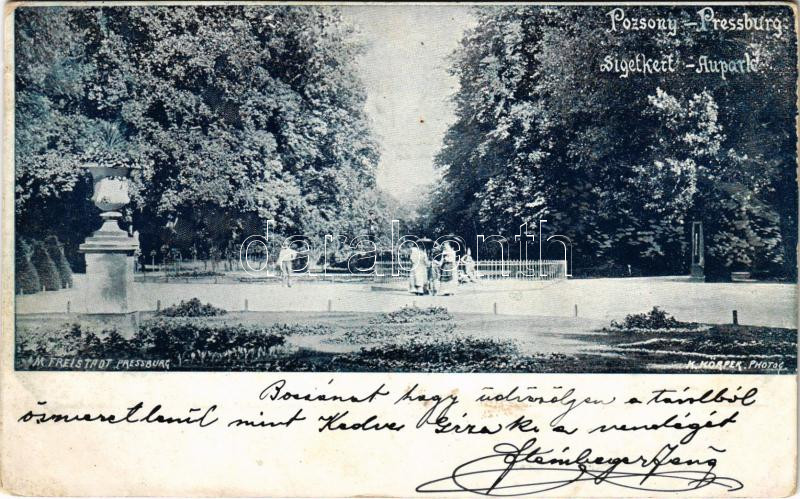 Pozsony – Pressburg
Sigetkert – Aupark
darabanth
M. FREISTADT. PRESSBURG
K. KÖRPER. PHOTOG
Bocsánat hogy üdvözöljen a távolból
ösmeretlenül mint Kedves Géza ki a vendégét